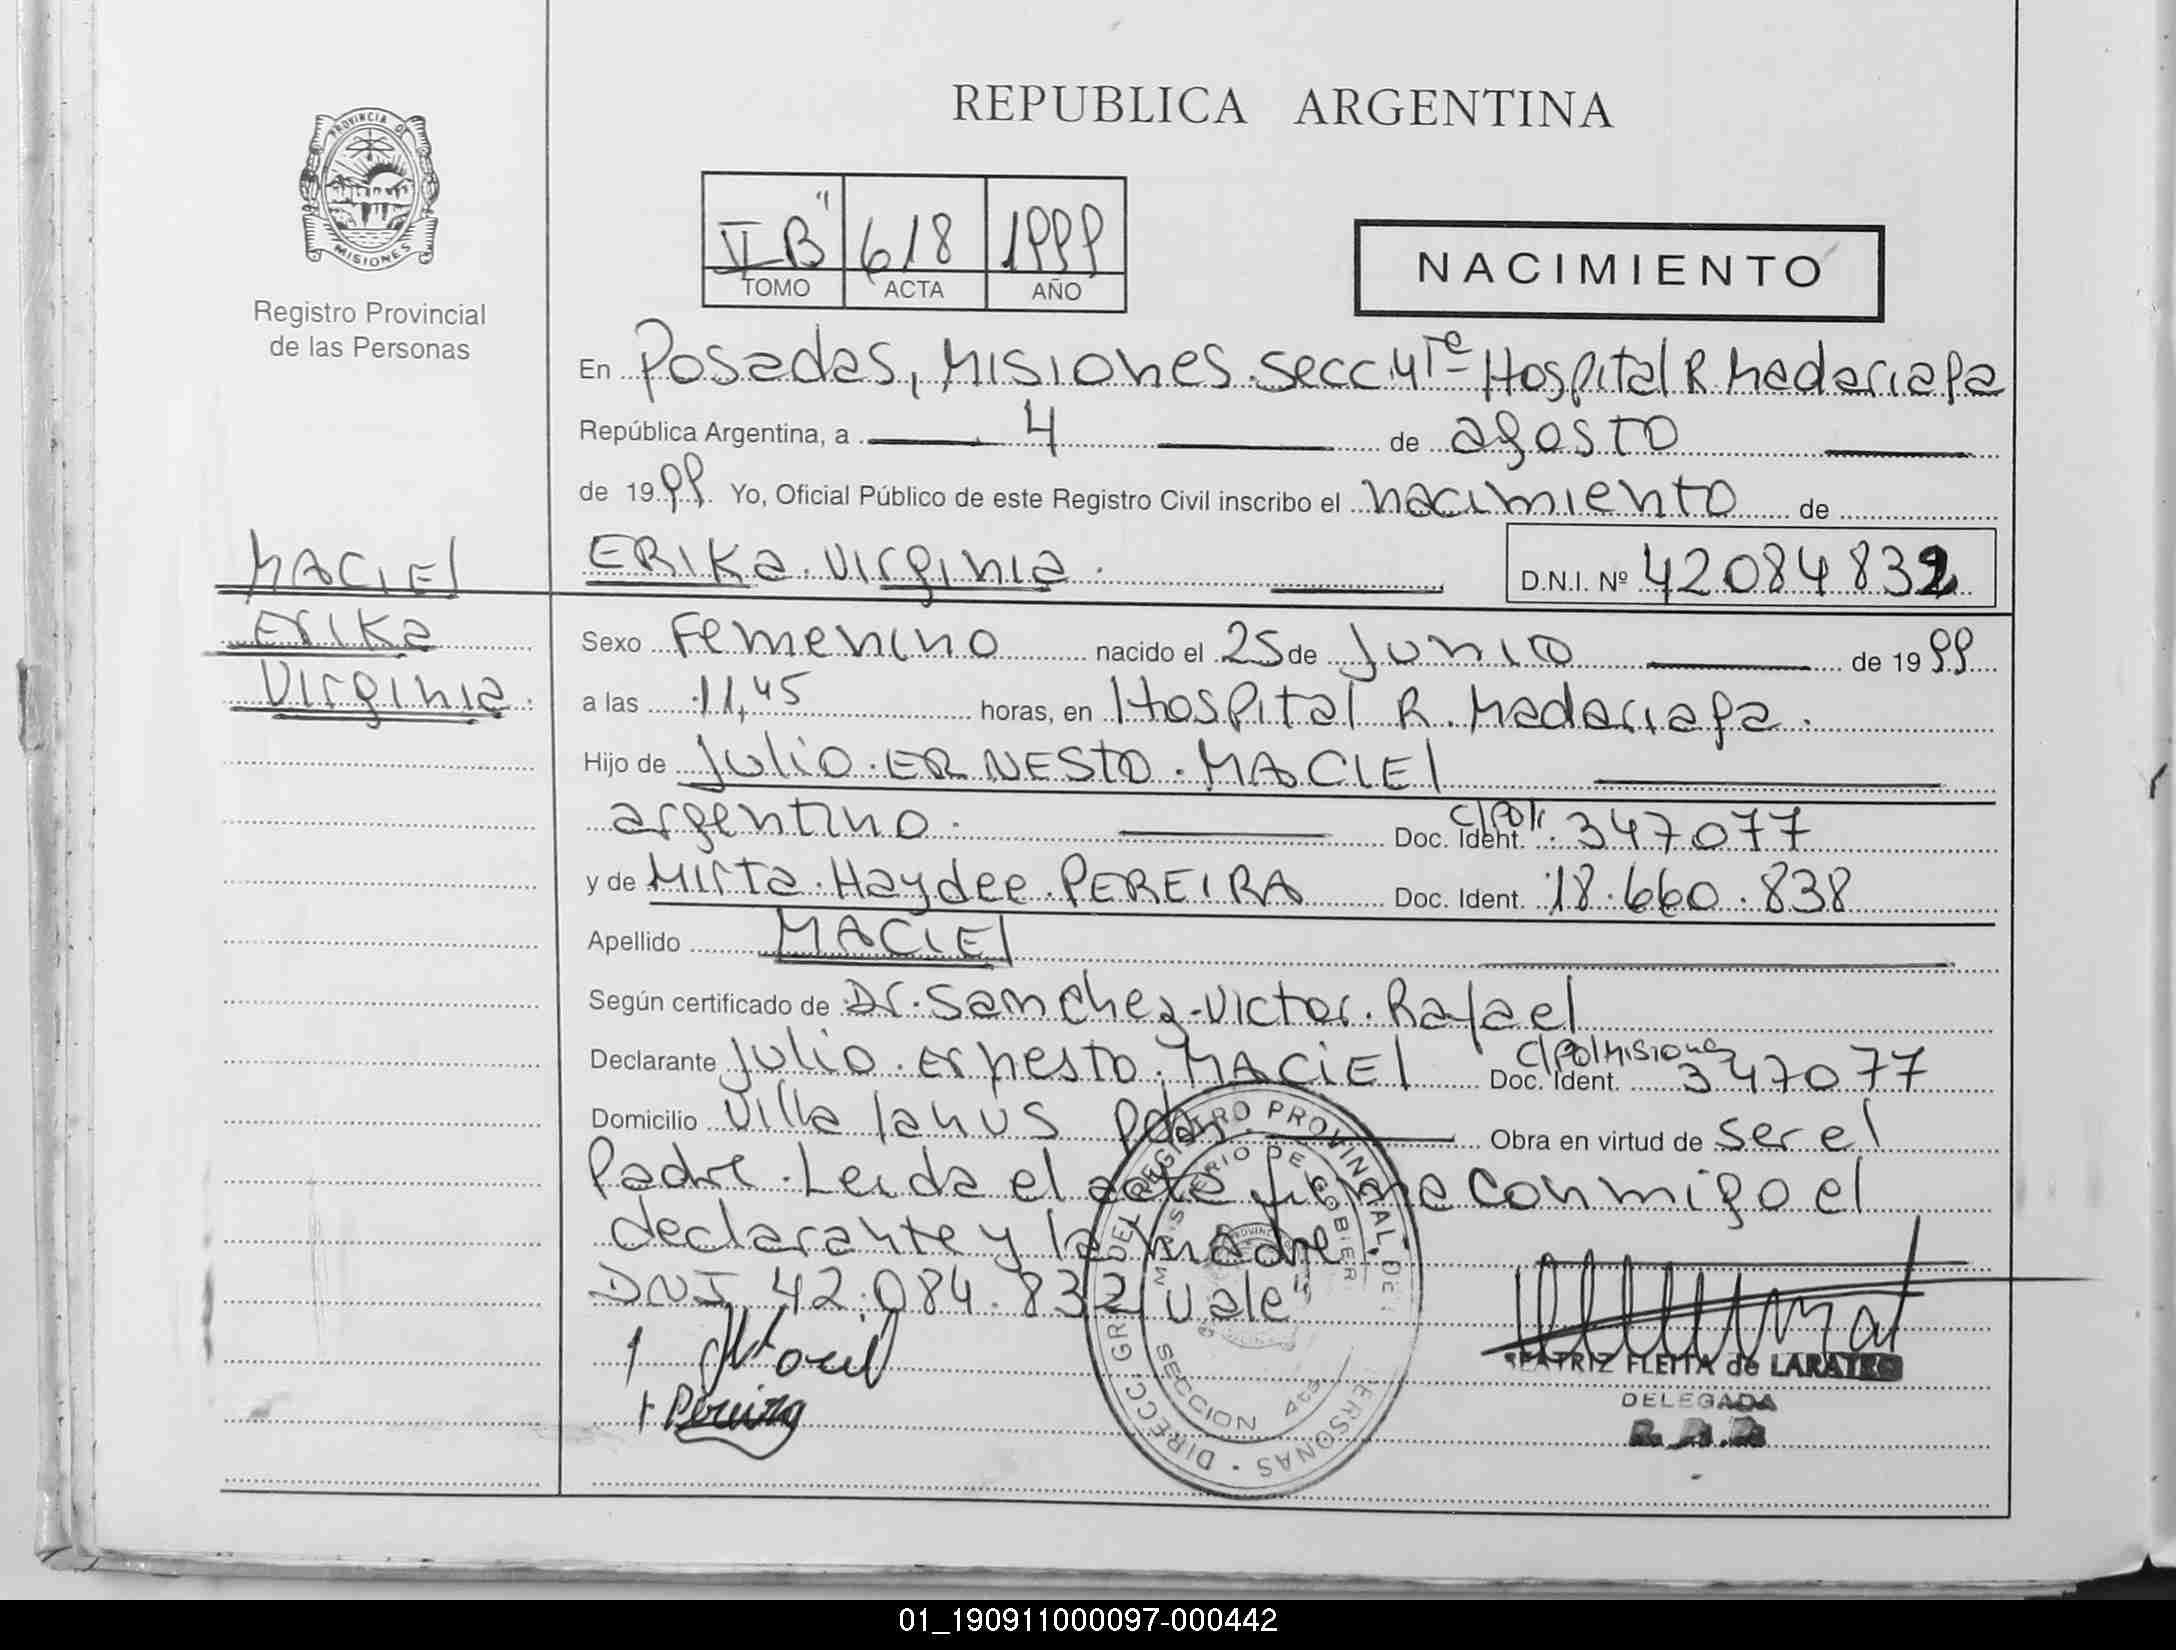 REPUBLICA ARGENTINA
PROVINCIA DE
MISIONES
Registro Provincial
de las Personas
VI B" 618 1999
TOMO ACTA AÑO
NACIMIENTO
En Posadas, Misiones. Secc. 4ta Hospital R. Madariaga
República Argentina, a 4 de agosto
de 1999 Yo, Oficial Público de este Registro Civil inscribo el nacimiento de
MACIEL
ERIKA Virginia. D.N.I. Nº 42084832
Erika
Virginia.
Sexo Femenino nacido el 25 de Junio de 1999
a las 11,45 horas, en Hospital R. Madariaga.
Hijo de Julio ERNESTO MACIEL
argentino. Doc. Ident. 347077
y de Mirta Haydee PEREIRA Doc. Ident. 18.660.838
Apellido MACIEL
Según certificado de Dr. Sanchez Victor Rafael
Declarante Julio Ernesto MACIEL Doc. Ident. CI Pol Misiones 347077
Domicilio Villa Lanus Pdas. Obra en virtud de ser el
Padre. Leida el acta firma conmigo el
declarante y la madre.
DNI 42.084.832 "Vale"
Pereira
DIRECC. GRAL. DEL REGISTRO PROVINCIAL DE PERSONAS
MINISTERIO DE GOBIER
SECCION 4ta
BEATRIZ FLEITA de
DELEGADA
01_190911000097-000442